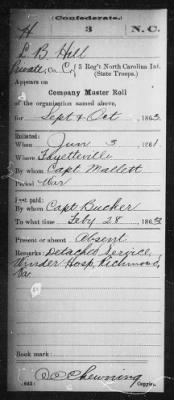 Confederate.
H 3 N.C.
L B Hall
Private, Co. C, 3 Reg't North Carolina Inf.
(State Troops.)
Appears on
Company Master Roll
of the organization named above,
for Sept & Oct, 1863
Enlisted:
When Jun 3, 1861
Where Fayetteville
By whom Capt Mallett
Period War
Last paid:
By whom Capt Bucker
To what time Feby 28, 1863
Present or absent Absent
Remarks: Detached Service,
Winder Hosp, Richmond,
Va
Book mark:
(642) Chewning
Copyist.